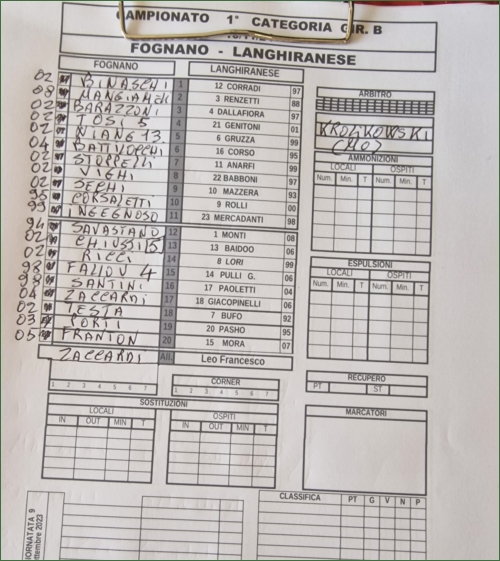 CAMPIONATO 1° CATEGORIA GIR. B
FOGNANO - LANGHIRANESE
FOGNANO LANGHIRANESE
02 BINASCHI 1 12 CORRADI 97
08 2 3 RENZETTI 88
02 BARAZZONI 3 4 DALLAFIORA 97
02 TOSI 5 4 21 GENITONI 01
02 NIANG 13 5 6 GRUZZA 99
04 6 16 CORSO 95
02 STOPPELLI 7 11 ANARFI 99
02 VIGHI 8 22 BABBONI 97
02 SECHI 9 10 MAZZERA 93
CORSALETTI 10 9 ROLLI 00
INGEGNOSO 11 23 MERCADANTI 98
94 SAVASTANO 12 1 MONTI 08
02 13 13 BAIDOO 06
02 RICCI 14 8 LORI 99
98 FALLOU 4 15 14 PULLI G. 06
98 SANTINI 16 17 PAOLETTI 04
04 ZACCARDI 17 18 GIACOPINELLI 06
02 TESTA 18 7 BUFO 92
PORTI 19 20 PASHO 95
05 FRANTON 20 15 MORA 07
ZACCARDI All. Leo Francesco
1 2 3 4 5 6 7 CORNER 1 2 3 4 5 6 7
SOSTITUZIONI
LOCALI OSPITI
IN OUT MIN T IN OUT MIN T
ARBITRO
KROLIKOWSKI
(MO)
AMMONIZIONI
LOCALI OSPITI
Num. Min. T Num. Min. T
ESPULSIONI
LOCALI OSPITI
Num. Min. T Num. Min. T
RECUPERO
PT ST
MARCATORI
CLASSIFICA PT G V N P
GIORNATA 9
settembre 2023